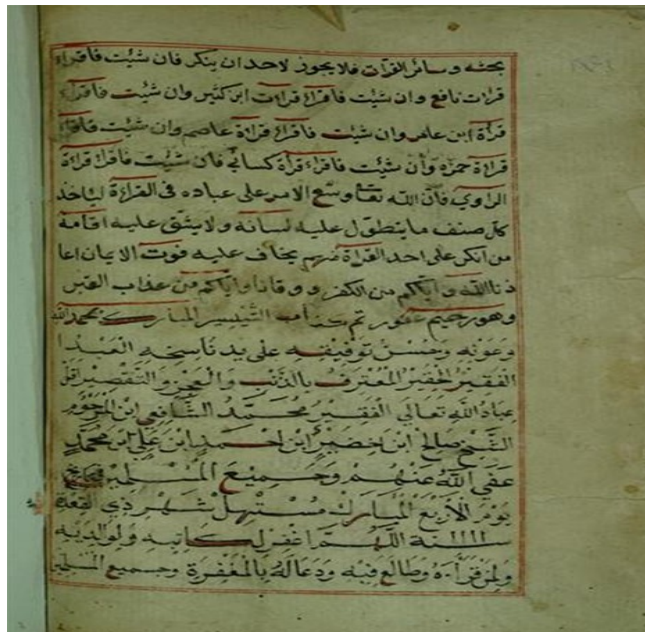 بحثه وسائر القرآت فلا يجوز لاحد ان ينكر فان شئت فاقراء
قرات نافع وان شئت فاقراء قرات ابن كثير وان شئت فاقراء
قرأة ابن عامر وان شئت فاقراء قراءة عاصم وان شئت فاقراء
قراءة حمزه وأن شئت فاقراء قرأة كسائي فان شئت فاقراء قراءة
الراوي فانّ الله تعا وسّع الامر على عباده فى القراءة ليأخذ
كلّ صنف ما ينطق ل عليه لسانه ولا يشق عليه اقامة
من انكر على احد القراة منهم يخاف عليه فوت الايمان اعا
ذنا الله وايّاكم من الكفر ووقانا واياكم من عذاب القبر
وهو رحيم غفور تم كتاب التيسير المبارك بحمد الله
وعونه وحسن توفيقه على يد ناسخه العبد
الفقير الحقير المعترف بالذنب والعجز والتقصير اقل
عباد الله تعالى الفقير محمد الشافعي ابن المرحوم
الشيخ صالح ابن خضير ابن احمد ابن علي ابن محمد
عفي الله عنهم وجميع المسلمين
يوم الاربع المبارك مستهل شهر ذي القعدة
سنة اللهم اغفر لكاتبه ولوالديه
ولمن قرأه وطالع فيه ودعا له بالمغفرة وجميع المسلمين